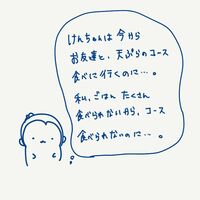 けんちゃんは 今から
お友達と、天ぷらのコース
食べに行くのに…。
私、ごはん たくさん
食べられないから、コース
食べられないのに…。